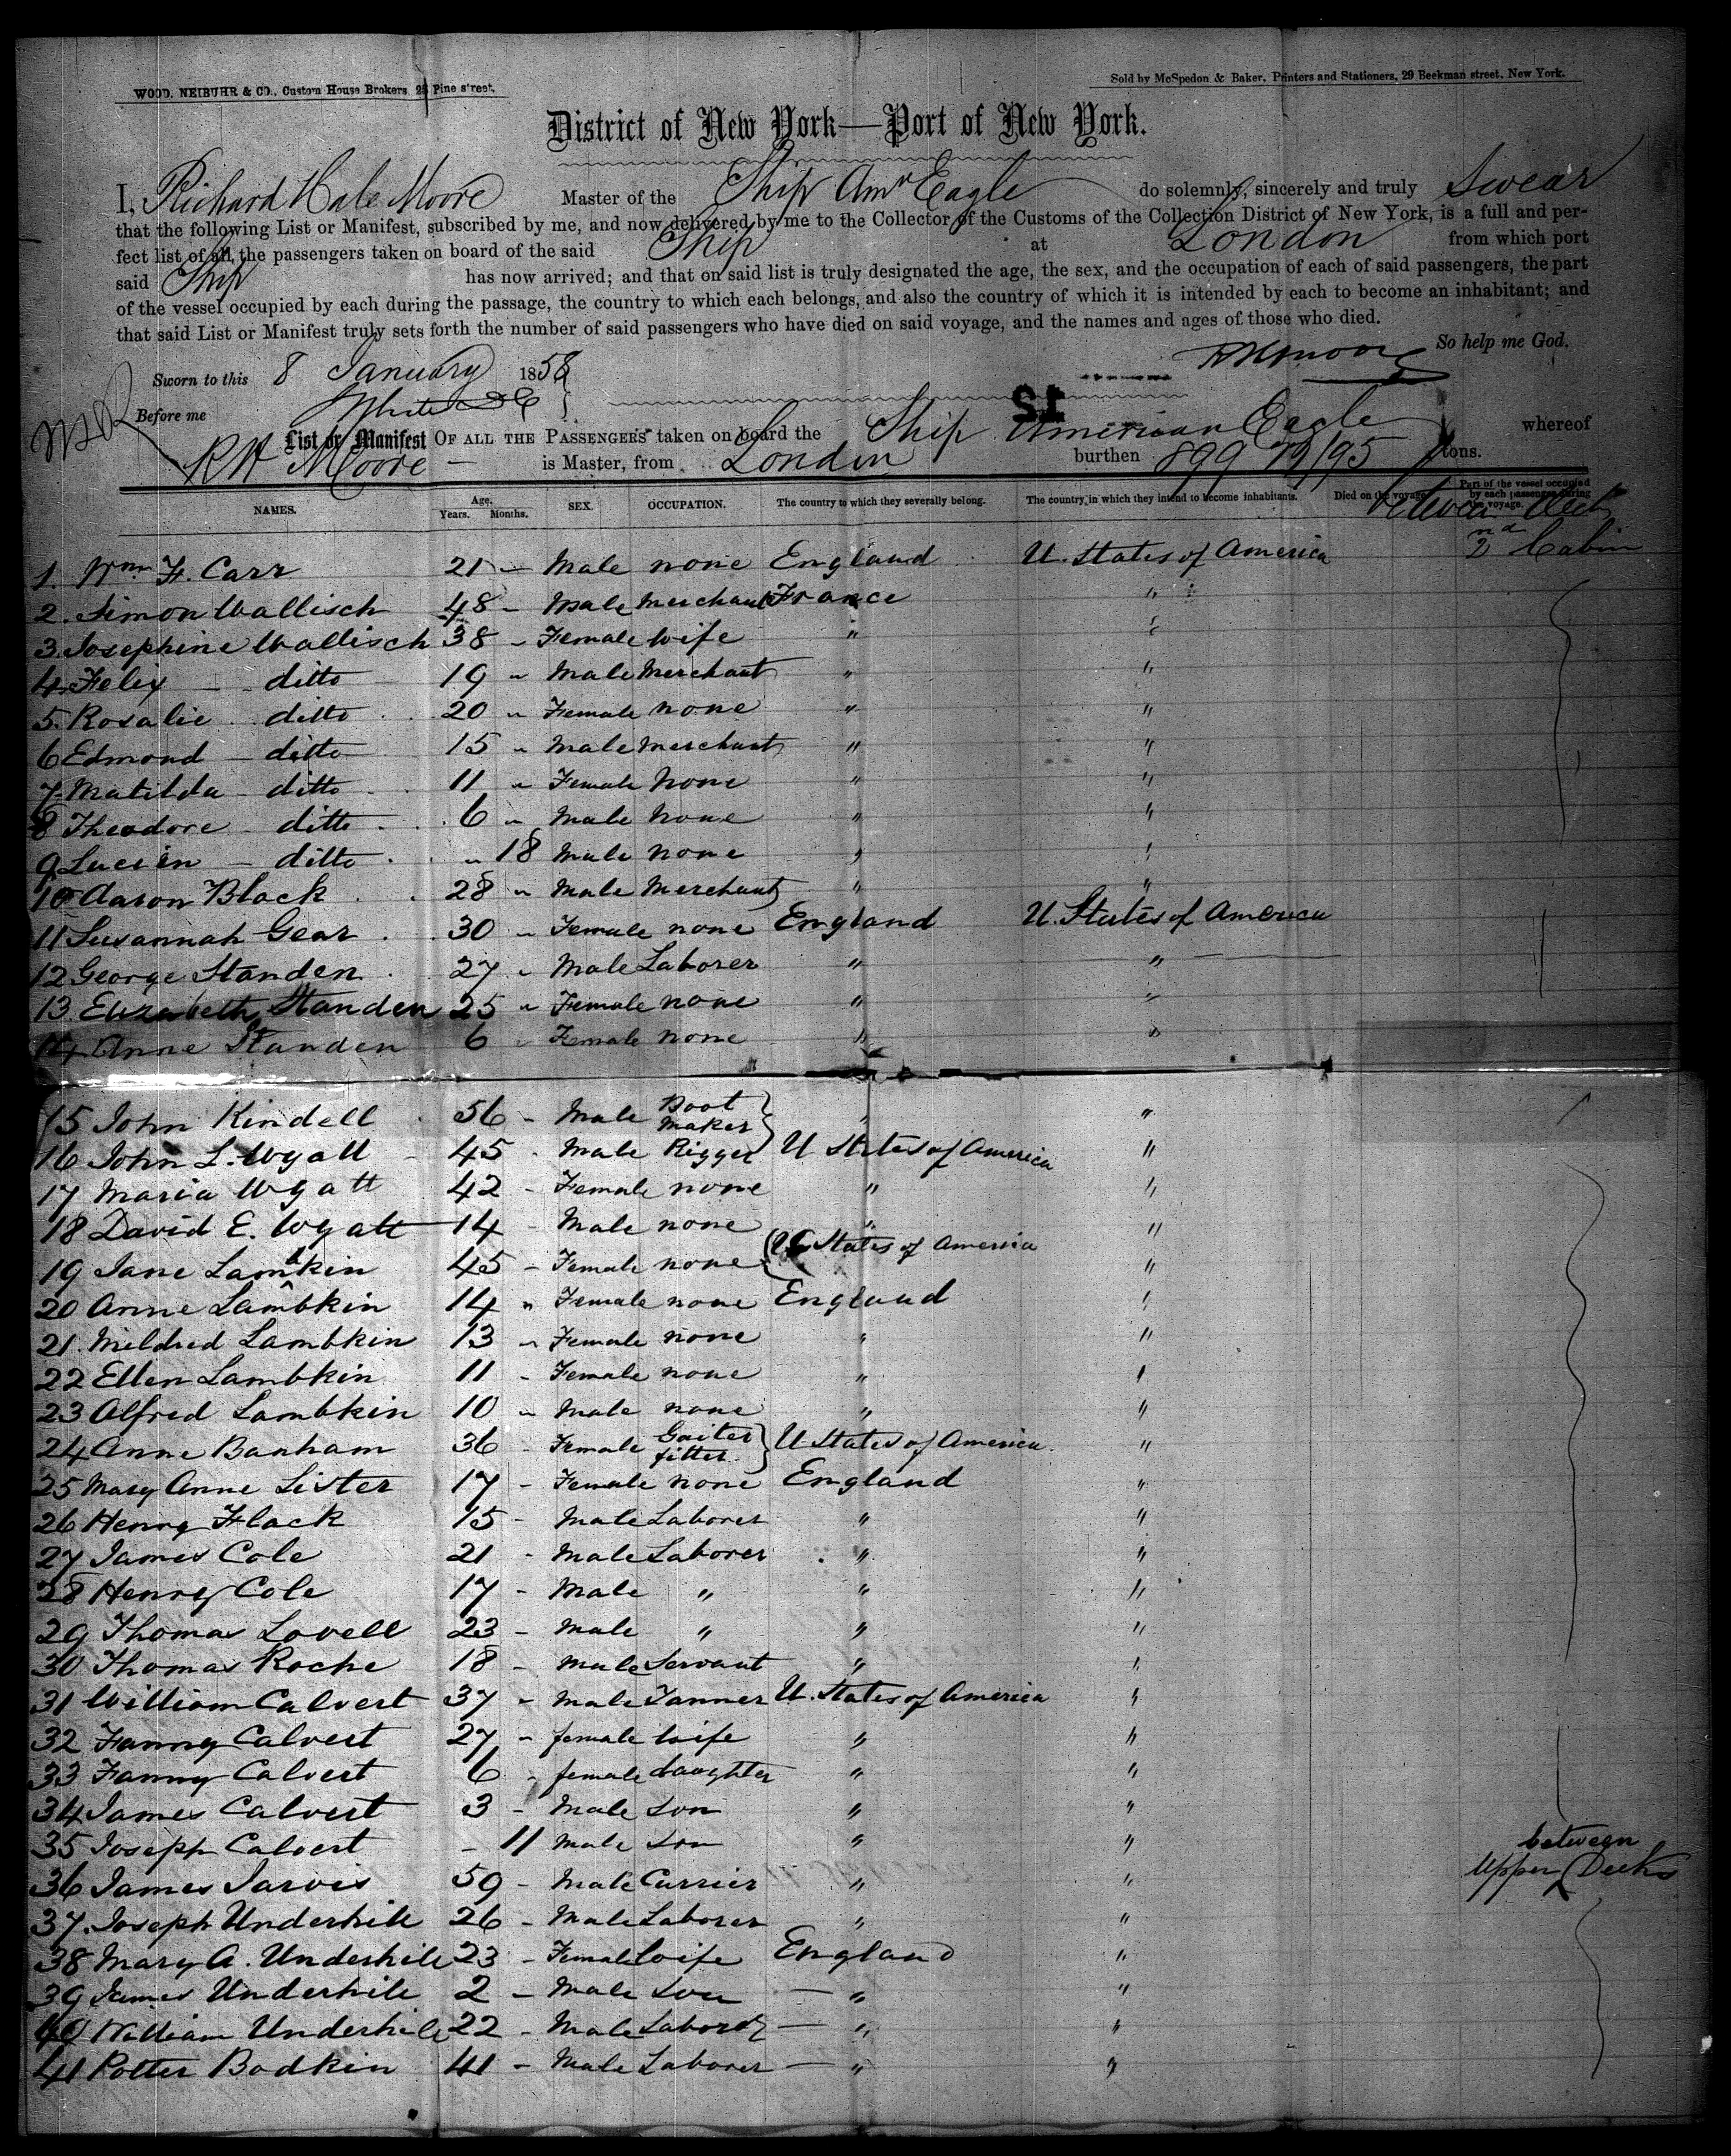 WOOD, NEIBUHR & CO., Custom House Brokers, Pine street.
Sold by McSpedon & Baker, Printers and Stationers, 29 Beekman street, New York.
District of New York—Port of New York.
I, Richard Hale Moore Master of the Ship Amn Eagle do solemnly, sincerely and truly Swear
that the following List or Manifest, subscribed by me, and now delivered by me to the Collector of the Customs of the Collection District of New York, is a full and per-
fect list of all the passengers taken on board of the said Ship at London from which port
said Ship has now arrived; and that on said list is truly designated the age, the sex, and the occupation of each of said passengers, the part
of the vessel occupied by each during the passage, the country to which each belongs, and also the country of which it is intended by each to become an inhabitant; and
that said List or Manifest truly sets forth the number of said passengers who have died on said voyage, and the names and ages of those who died.
So help me God.
RHMoore
Sworn to this 8 January 1858
Before me
List or Manifest OF ALL THE PASSENGERS taken on board the Ship American Eagle whereof
R H Moore is Master, from London burthen 899 79/95 tons.
NAMES. Age. Years. Months. SEX. OCCUPATION. The country to which they severally belong. The country in which they intend to become inhabitants. Died on the voyage. Part of the vessel occupied by each passenger during the voyage.
between Deck
1. Wm. F. Carr 21 - Male none England U. States of America 2nd Cabin
2. Simon Wallisch 48 - Male Merchant France "
3. Josephine Wallisch 38 - Female Wife " "
4. Felix - ditto 19 " Male Merchant " "
5. Rosalie ditto 20 " Female none " "
6 Edmond - ditto 15 " Male Merchant " "
7. Matilda - ditto 11 " Female None " "
8 Theodore - ditto 6 " Male None " "
9 Lucien - ditto " 18 Male none " "
10 Aaron Black 28 " Male Merchant " "
11 Susannah Gear 30 " Female none England U. States of America
12 George Standen 27 " Male Laborer " "
13. Elizabeth Standen 25 " Female none " "
14 Anne Standen 6 " Female none " "
15 John Kindell 56 - Male Boot Maker " "
16 John L. Wyatt 45 - Male Rigger U States of America "
17 Maria Wyatt 42 - Female none " "
18 David E. Wyatt 14 - Male none " "
19 Jane Lambkin 45 - Female none U States of America "
20 Anne Lambkin 14 " Female none England "
21. Mildred Lambkin 13 " Female none " "
22 Ellen Lambkin 11 - Female none " "
23 Alfred Lambkin 10 " Male none " "
24 Anne Banham 36 - Female Gaiter fitter U States of America. "
25 Mary Anne Lister 17 - Female none England "
26 Henry Flack 15 - Male Laborer " "
27 James Cole 21 - Male Laborer " "
28 Henry Cole 17 - Male " " "
29 Thomas Lovell 23 - Male " " "
30 Thomas Roche 18 - Male Servant " "
31 William Calvert 37 - Male Tanner U. States of America "
32 Fanny Calvert 27 - female wife " "
33 Fanny Calvert 6 - female daughter " "
34 James Calvert 3 - Male Son " "
35 Joseph Calvert - 11 Male Son " " between
36 James Jarvis 59 - Male Currier " " Upper Decks
37. Joseph Underhill 26 - Male Laborer " "
38 Mary A. Underhill 23 - Female Wife England "
39 James Underhill 2 - Male Son - " "
40 William Underhill 22 - Male Laborer - " "
41 Potter Bodkin 41 - Male Laborer - " "